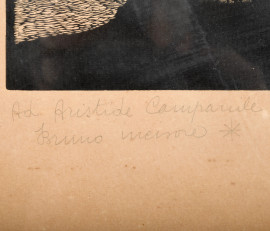 Ad Aristide Campanile
Bruno